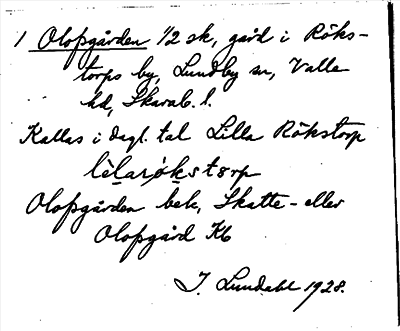 1 Olofsgården 1/2 sk, gård i Röks-
torps by, Lundby sn, Valle
hd, Skarab. l.
Kallas i dagl. tal Lilla Rökstorp
lìlarǿkstorp
Olofsgården bek, Skatte- eller
Olofsgård Kb
I. Lundahl 1928.